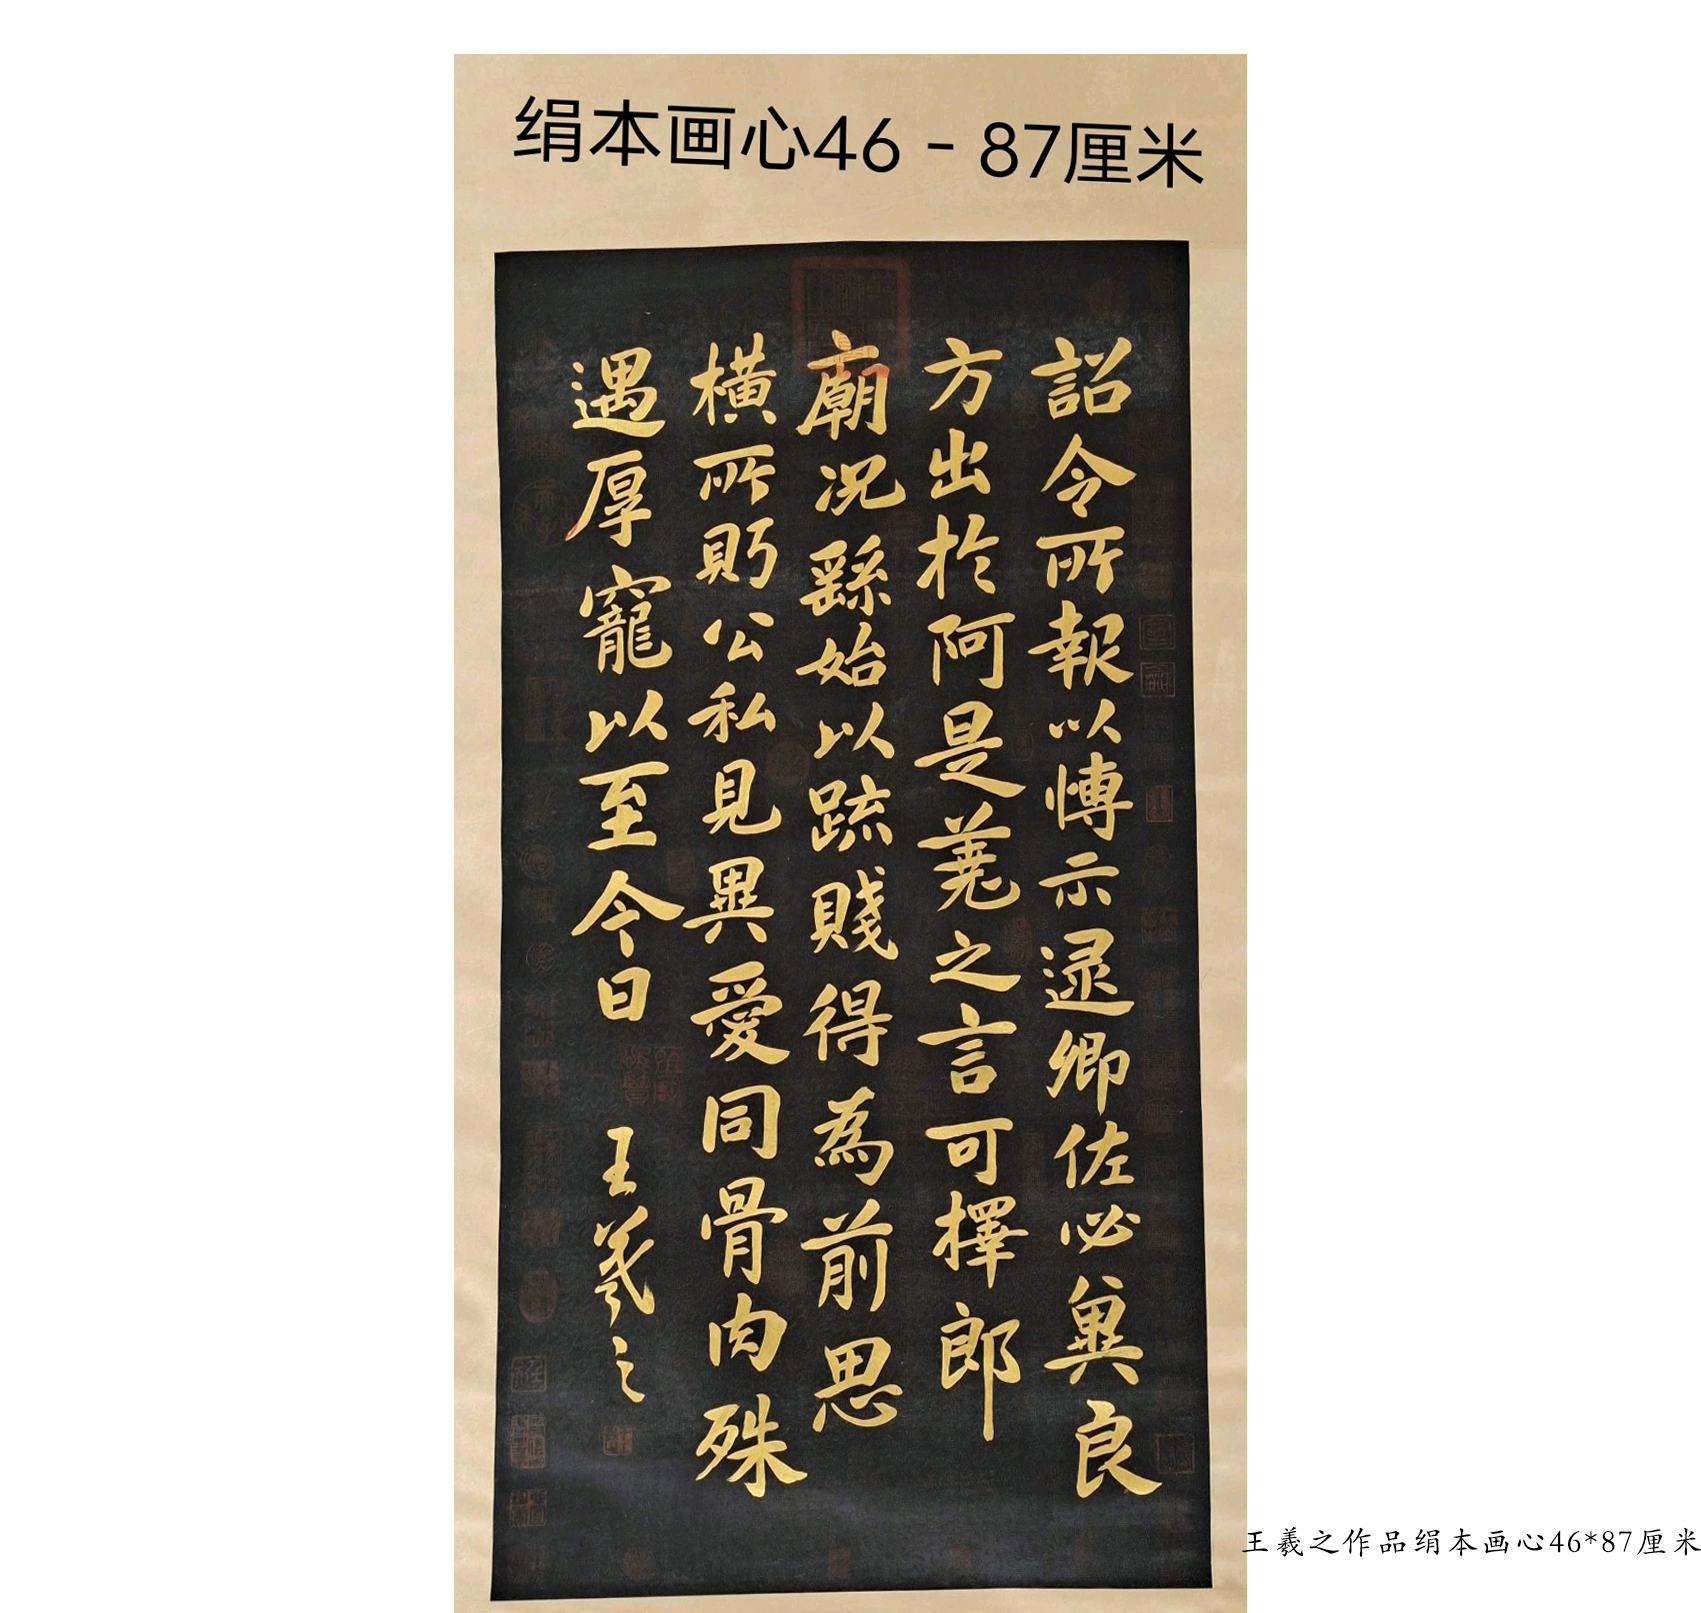 绢本画心46-87厘米
詔令所報以博示逯卿佐必兾良
方出於阿是蕘之言可擇郎
廟況繇始以疏賤得為前思
橫所眄公私見異愛同骨肉殊
遇厚寵以至今日
王羲之
王羲之作品绢本画心46*87厘米